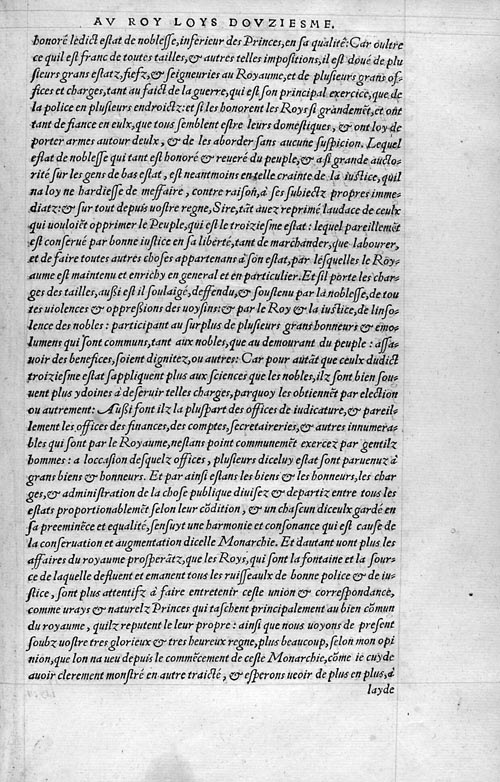 AV ROY LOYS DOVZIESME.
honoré ledict estat de noblesse, inferieur des Princes, en sa qualité: Car oultre
ce quil est franc de toutes tailles, & autres telles impositions, il est doué de plu
sieurs grans estatz, fiefz, & seigneuries au Royaume, et de plusieurs grans of-
fices et charges, tant au faict de la guerre, qui est son principal exercice, que de
la police en plusieurs endroictz: et si les honorent les Roys si grandemẽt, et ont
tant de fiance en eulx, que tous semblent estre leurs domestiques, & ont loy de
porter armes autour deulx, & de les aborder sans aucune suspicion. Lequel
estat de noblesse qui tant est honoré & reueré du peuple, & a si grande aucto-
rité sur les gens de bas estat, est neantmoins en telle crainte de la iustice, quil
na loy ne hardiesse de meffaire, contre raison, à ses subiectz propres imme-
diatz: & sur tout depuis uostre regne, Sire, tãt auez reprimé laudace de ceulx
qui uouloiẽt opprimer le Peuple, qui est le troiziesme estat: lequel pareillemẽt
est conserué par bonne iustice en sa liberté, tant de marchander, que labourer,
et de faire toutes autres choses appartenans à son estat, par lesquelles le Roy-
aume est maintenu et enrichy en general et en particulier. Et sil porte les char-
ges des tailles, außi est il soulaigé, deffendu, & soustenu par la noblesse, de tou
tes uiolences & oppreßions des uoysins: & par le Roy & la iustice, de linso-
lence des nobles: participant au surplus de plusieurs grans honneurs & emo-
lumens qui sont communs, tant aux nobles, que au demourant du peuple: assa-
uoir des benefices, soient dignitez, ou autres: Car pour autãt que ceulx dudict
troiziesme estat sappliquent plus aux sciences que les nobles, ilz sont bien sou-
uent plus ydoines à deseruir telles charges, parquoy les obtiennẽt par election
ou autrement: Außi font ilz la pluspart des offices de iudicature, & pareil-
lement les offices des finances, des comptes, secretaireries, & autres innumera-
bles qui sont par le Royaume, nestans point communemẽt exercez par gentilz
hommes: a loccasion desquelz offices, plusieurs diceluy estat sont paruenuz à
grans biens & honneurs. Et par ainsi estans les biens & les honneurs, les char
ges, & administration de la chose publique diuisez & departiz entre tous les
estats proportionablemẽt selon leur cõdition, & un chascun diceulx gardé en
sa preeminẽce et equalité, sensuyt une harmonie et consonance qui est cause de
la conseruation et augmentation dicelle Monarchie. Et dautant uont plus les
affaires du royaume prosperãtz, que les Roys, qui sont la fontaine et la sour-
ce de laquelle defluent et emanent tous les ruisseaulx de bonne police & de iu-
stice, sont plus attentifz à faire entretenir ceste union & correspondance,
comme urays & naturelz Princes qui taschent principalement au bien cõmun
du royaume, quilz reputent le leur propre: ainsi que nous uoyons de present
soubz uostre tres glorieux & tres heureux regne, plus beaucoup, selon mon opi
nion, que lon na ueu depuis le commẽcement de ceste Monarchie, cõme ie cuyde
auoir clerement monstré en autre traicté, & esperons ueoir de plus en plus, à
layde